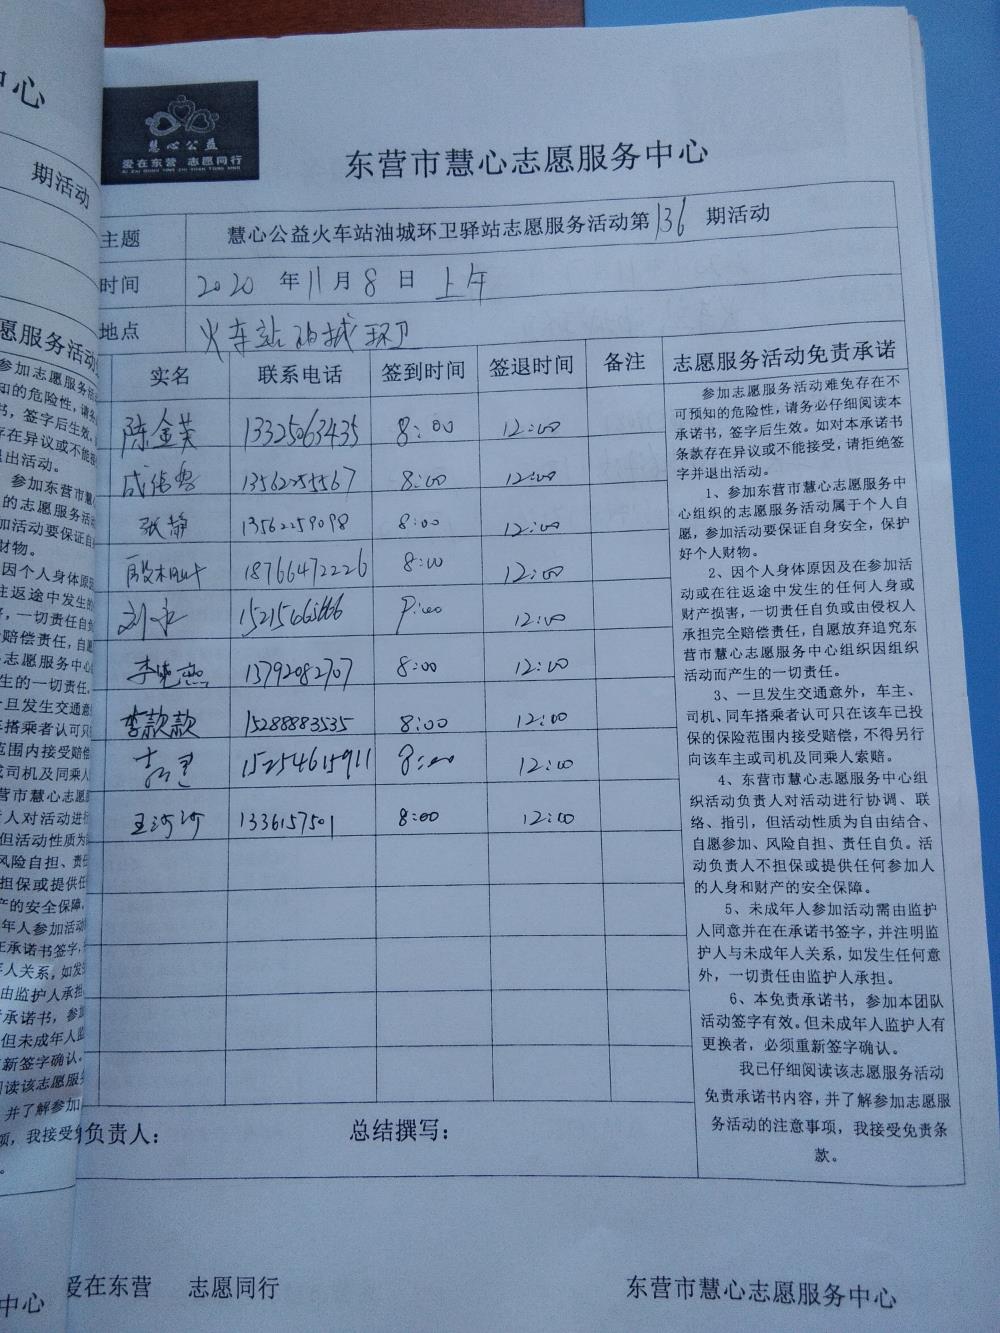 慧心公益
爱在东营 志愿同行
AI ZAI DONG YING ZHI YUAN TONG XING
东营市慧心志愿服务中心
主题 慧心公益火车站油城环卫驿站志愿服务活动第136期活动
时间 2020年11月8日 上午
地点 火车站油城环卫
实名 联系电话 签到时间 签退时间 备注 志愿服务活动免责承诺
陈金英 13325063435 8:00 12:00
13562255567 8:00 12:00
张静 13562259098 8:00 12:00
18766472226 8:00 12:00
刘永 12:00
李 13792082707 8:00 12:00
李款款 15288883535 8:00 12:00
15254615911 8:00 12:00
王沙沙 1336157501 8:00 12:00
参加志愿服务活动难免存在不
可预知的危险性，请务必仔细阅读本
承诺书，签字后生效。如对本承诺书
条款存在异议或不能接受，请拒绝签
字并退出活动。
1、参加东营市慧心志愿服务中
心组织的志愿服务活动属于个人自
愿，参加活动要保证自身安全，保护
好个人财物。
2、因个人身体原因及在参加活
动或在往返途中发生的任何人身或
财产损害，一切责任自负或由侵权人
承担完全赔偿责任，自愿放弃追究东
营市慧心志愿服务中心组织因组织
活动而产生的一切责任。
3、一旦发生交通意外，车主、
司机、同车搭乘者认可只在该车已投
保的保险范围内接受赔偿，不得另行
向该车主或司机及同乘人索赔。
4、东营市慧心志愿服务中心组
织活动负责人对活动进行协调、联
络、指引，但活动性质为自由结合、
自愿参加、风险自担、责任自负。活
动负责人不担保或提供任何参加人
的人身和财产的安全保障。
5、未成年人参加活动需由监护
人同意并在在承诺书签字，并注明监
护人与未成年人关系，如发生任何意
外，一切责任由监护人承担。
6、本免责承诺书，参加本团队
活动签字有效。但未成年人监护人有
更换者，必须重新签字确认。
我已仔细阅读该志愿服务活动
免责承诺书内容，并了解参加志愿服
务活动的注意事项，我接受免责条
款。
负责人： 总结撰写：
爱在东营 志愿同行 东营市慧心志愿服务中心